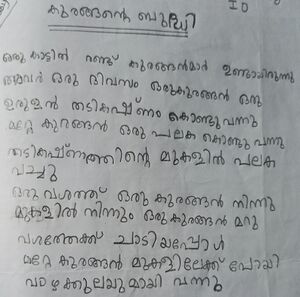 കുരങ്ങന്റെ ബുദ്ധി
ഒരു കാട്ടിൽ രണ്ട് കുരങ്ങൻമാർ ഉണ്ടായിരുന്നു
അവർ ഒരു ദിവസം ഒരുകുരങ്ങൻ ഒരു
ഉരുളൻ തടികഷ്ണം കൊണ്ടുവന്നു
മറ്റേ കുരങ്ങൻ ഒരു പലക കൊണ്ടുവന്നു
തടികഷ്ണത്തിന്റെ മുകളിൽ പലക
വച്ചു
ഒരു വശത്ത് ഒരു കുരങ്ങൻ നിന്നു
മുകളിൽ നിന്നും ഒരുകുരങ്ങൻ മറു
വശത്തേക്ക് ചാടിയപ്പോൾ
മറ്റേ കുരങ്ങൻ മുകളിലേക്ക് പോയി
വാഴക്കുലയുമായി വന്നു